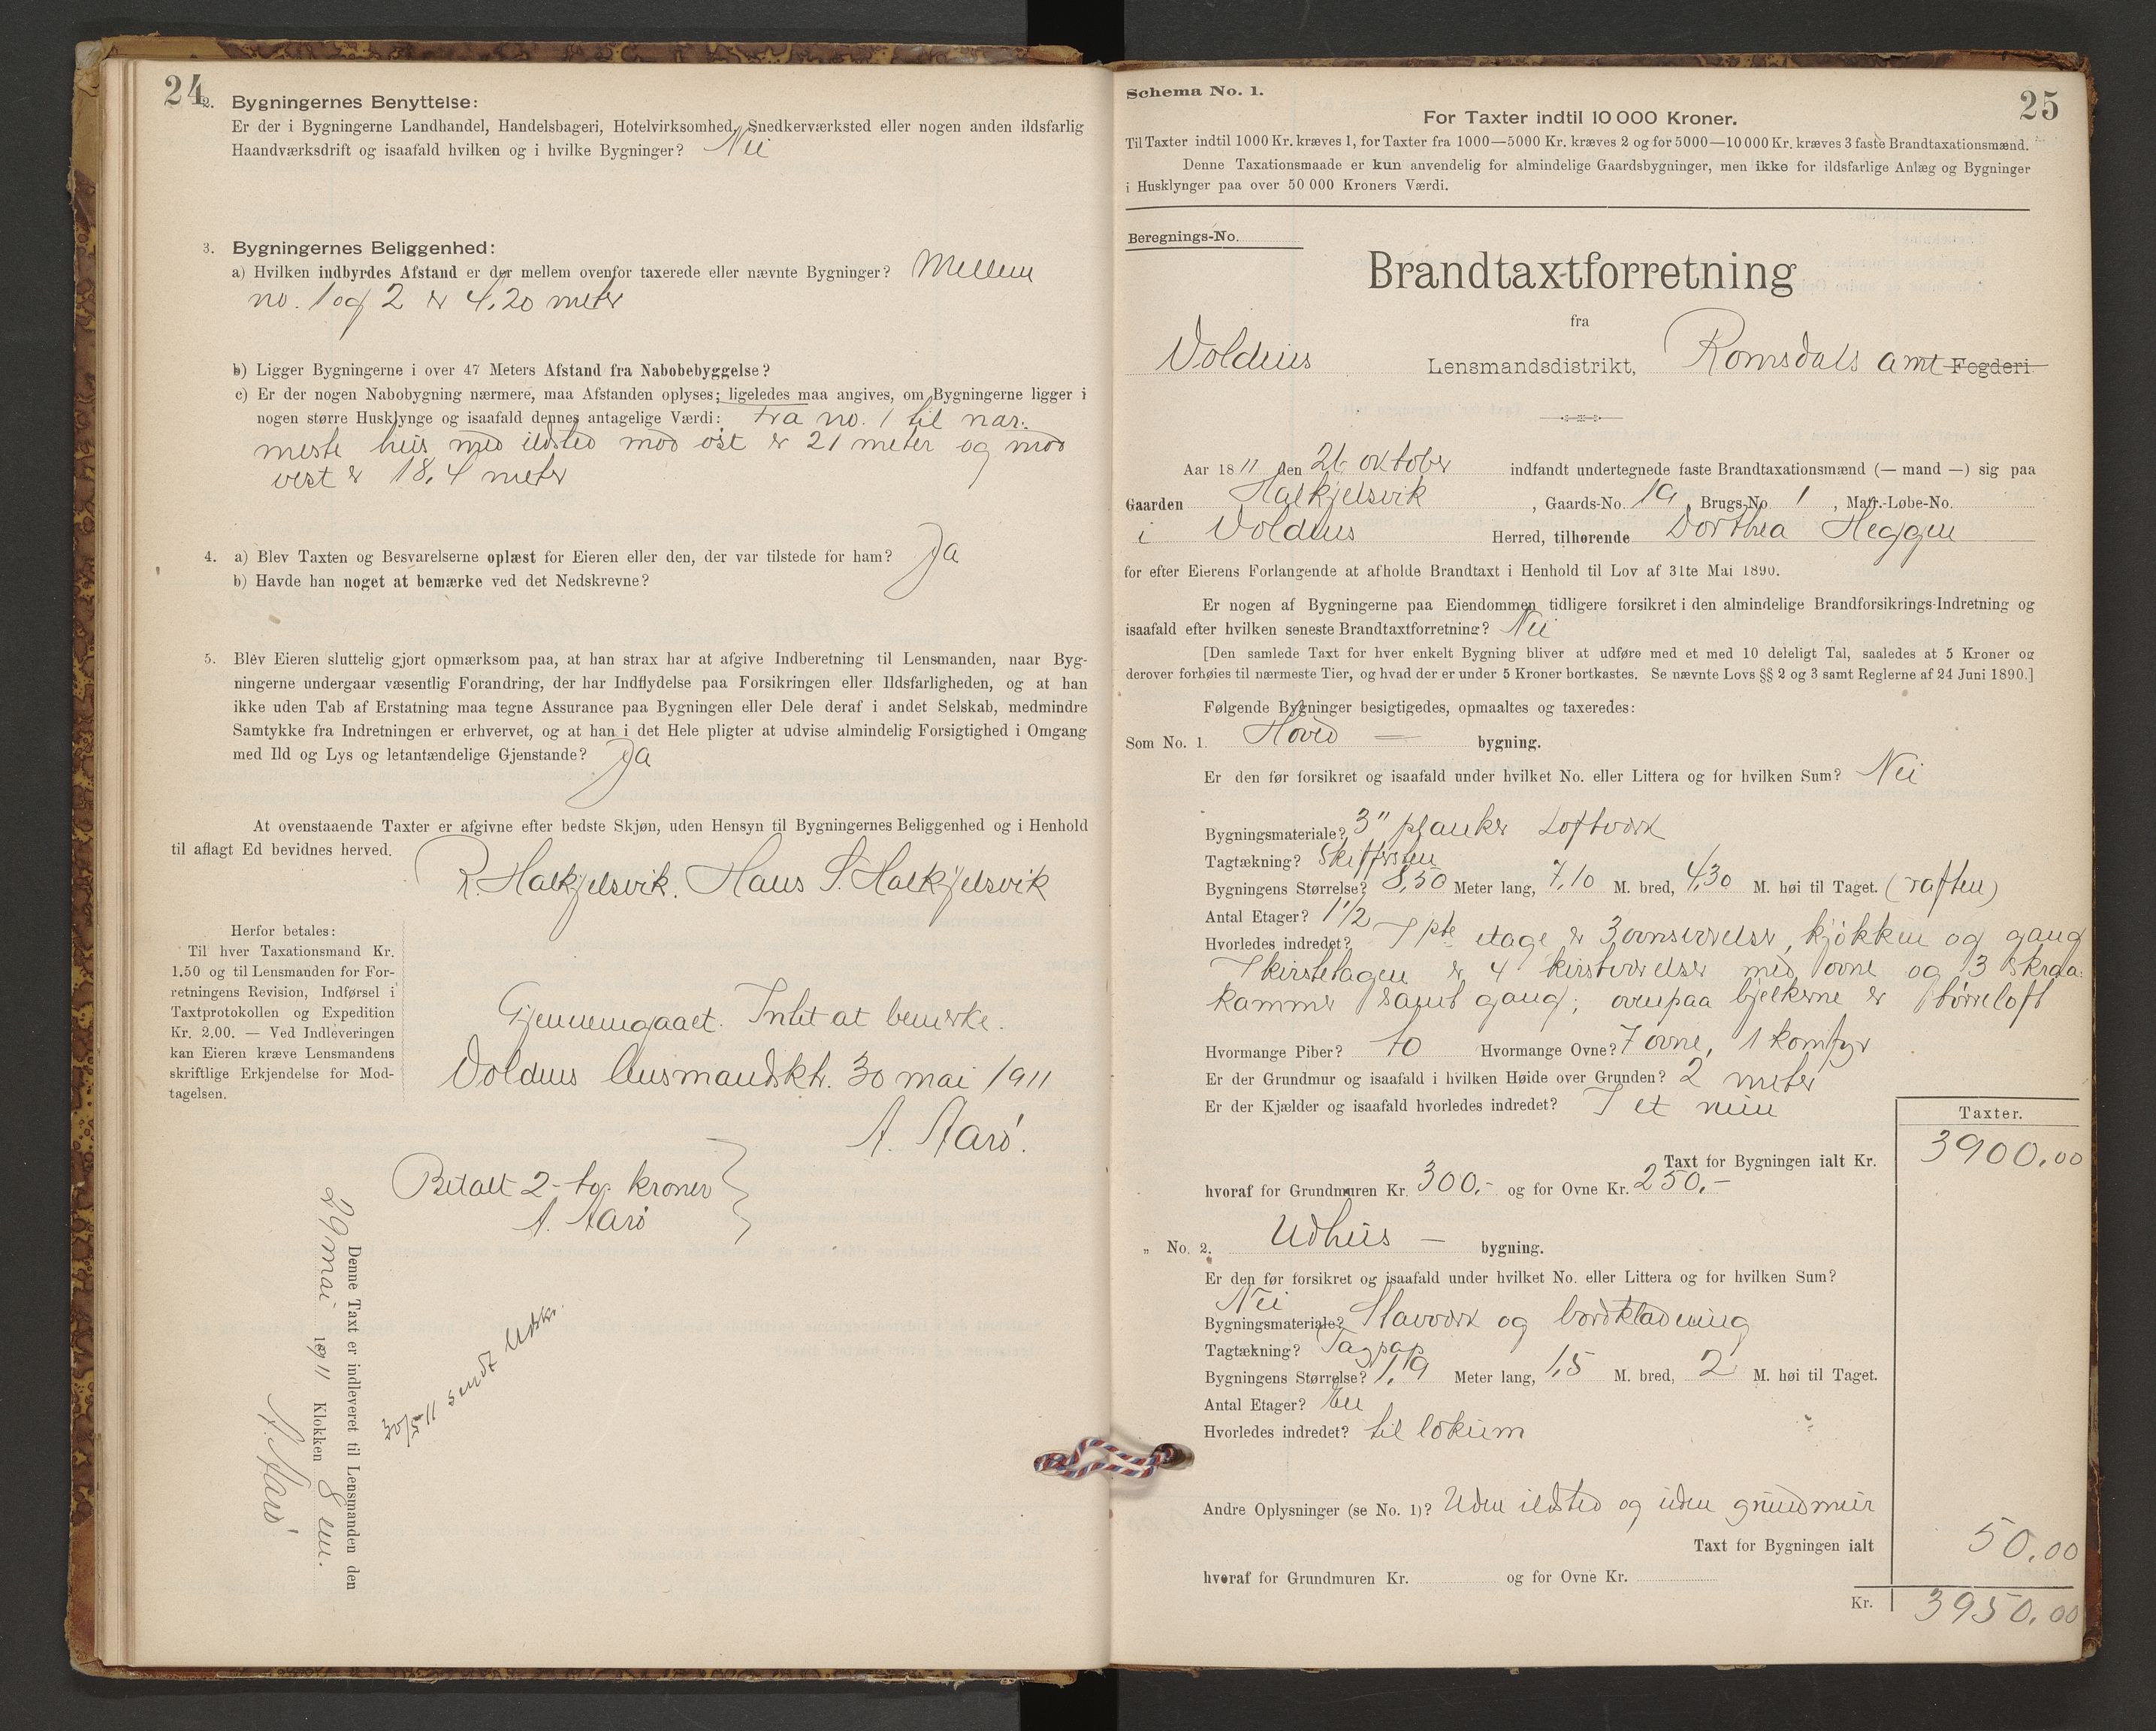 24
2. Bygningernes Benyttelse:
Er der i Bygningerne Landhandel, Handelsbageri, Hotelvirksomhed, Snedkerværksted eller nogen anden ildsfarlig
Haandværksdrift og isaafald hvilken og i hvilke Bygninger? Nei
3. Bygningernes Beliggenhed:
a) Hvilken indbyrdes Afstand er der mellem ovenfor taxerede eller nævnte Bygninger? Mellem
no. 1 og 2 er 4,20 meter
b) Ligger Bygningerne i over 47 Meters Afstand fra Nabobebyggelse?
c) Er der nogen Nabobygning nærmere, maa Afstanden oplyses; ligeledes maa angives, om Bygningerne ligger i
nogen større Husklynge og isaafald dennes antagelige Værdi: Fra no. 1 til nær-
meste hus med ildsted mod ost er 21 meter og mod
vest er 18,4 meter
4. a) Blev Taxten og Besvarelserne oplæst for Eieren eller den, der var tilstede for ham? Ja
b) Havde han noget at bemærke ved det Nedskrevne?
5. Blev Eieren sluttelig gjort opmærksom paa, at han strax har at afgive Indberetning til Lensmanden, naar Byg-
ningerne undergaar væsentlig Forandring, der har Indflydelse paa Forsikringen eller Ildsfarligheden, og at han
ikke uden Tab af Erstatning maa tegne Assurance paa Bygningen eller Dele deraf i andet Selskab, medmindre
Samtykke fra Indretningen er erhvervet, og at han i det Hele pligter at udvise almindelig Forsigtighed i Omgang
med Ild og Lys og letantændelige Gjenstande? Ja
At ovenstaaende Taxter er afgivne efter bedste Skjøn, uden Hensyn til Bygningernes Beliggenhed og i Henhold
til aflagt Ed bevidnes herved.
R. Halkjelsvik. Hans S. Halkjelsvik
Herfor betales:
Til hver Taxationsmand Kr.
1.50 og til Lensmanden for For-
retningens Revision, Indførsel i
Taxtprotokollen og Expedition
Kr. 2.00. — Ved Indleveringen
kan Eieren kræve Lensmandens
skriftlige Erkjendelse for Mod-
tagelsen.
Gjennemgaaet. Intet at bemerke.
Voldens lensmandskt. 30 mai 1911
A. Aarö.
Betalt 2 - to - kroner
A. Aarö
Denne Taxt er indleveret til Lensmanden den
29 mai 1911 Klokken 8 em.
A. Aarö
30/5 11 sendt Udskr.
25
Schema No. 1.
For Taxter indtil 10 000 Kroner.
Til Taxter indtil 1000 Kr. kræves 1, for Taxter fra 1000—5000 Kr. kræves 2 og for 5000—10 000 Kr. kræves 3 faste Brandtaxationsmænd.
Denne Taxationsmaade er kun anvendelig for almindelige Gaardsbygninger, men ikke for ildsfarlige Anlæg og Bygninger
i Husklynger paa over 50 000 Kroners Værdi.
Beregnings-No.
Brandtaxtforretning
fra
Voldens Lensmandsdistrikt, Romsdals amt Fogderi
Aar 1811 den 26 oktober indfandt undertegnede faste Brandtaxationsmænd (— mand —) sig paa
Gaarden Halkjelsvik, Gaards-No. 19, Brugs-No. 1, Matr.-Løbe-No.
i Voldens Herred, tilhørende Dorthea Heggen
for efter Eierens Forlangende at afholde Brandtaxt i Henhold til Lov af 31te Mai 1890.
Er nogen af Bygningerne paa Eiendommen tidligere forsikret i den almindelige Brandforsikrings-Indretning og
isaafald efter hvilken seneste Brandtaxtforretning? Nei
[Den samlede Taxt for hver enkelt Bygning bliver at udføre med et med 10 deleligt Tal, saaledes at 5 Kroner og
derover forhøies til nærmeste Tier, og hvad der er under 5 Kroner bortkastes. Se nævnte Lovs §§ 2 og 3 samt Reglerne af 24 Juni 1890.]
Følgende Bygninger besigtigedes, opmaaltes og taxeredes:
Som No. 1. Hoved — bygning.
Er den før forsikret og isaafald under hvilket No. eller Littera og for hvilken Sum? Nei
Bygningsmateriale? 3" planker Loftværk
Tagtækning? Skiffersten
Bygningens Størrelse? 8,50 Meter lang, 7,10 M. bred, 4,30 M. høi til Taget. (raften)
Antal Etager? 1 1/2
Hvorledes indredet? I 1ste etage er 3 ovnsværelser, kjökken og gang
I kvistetagen er 4 kvistværelser med ovne og 3 skraa-
kammer samt gang; ovenpaa bjelkerne er törreloft
Hvormange Piber? to Hvormange Ovne? 7 ovne, 1 komfyr
Er der Grundmur og isaafald i hvilken Høide over Grunden? 2 meter
Er der Kjælder og isaafald hvorledes indredet? I et rum
Taxter.
Taxt for Bygningen ialt Kr. 3900,00
hvoraf for Grundmuren Kr. 300,- og for Ovne Kr. 250,-
„ No. 2. Udhus — bygning.
Er den før forsikret og isaafald under hvilket No. eller Littera og for hvilken Sum?
Nei
Bygningsmateriale? Stavværk og bordklædning
Tagtækning? Tagpap
Bygningens Størrelse? 1,9 Meter lang, 1,5 M. bred, 2 M. høi til Taget.
Antal Etager? En
Hvorledes indredet? til lokum
Andre Oplysninger (se No. 1)? Uden ildsted og uden grundmur
Taxt for Bygningen ialt 50,00
hvoraf for Grundmuren Kr. og for Ovne Kr.
Kr. 3950,00